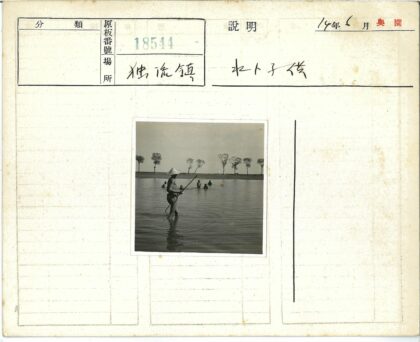 分類
原板番號
18544
説明
14年6月
奥園
場所
独流鎮
水ト子供